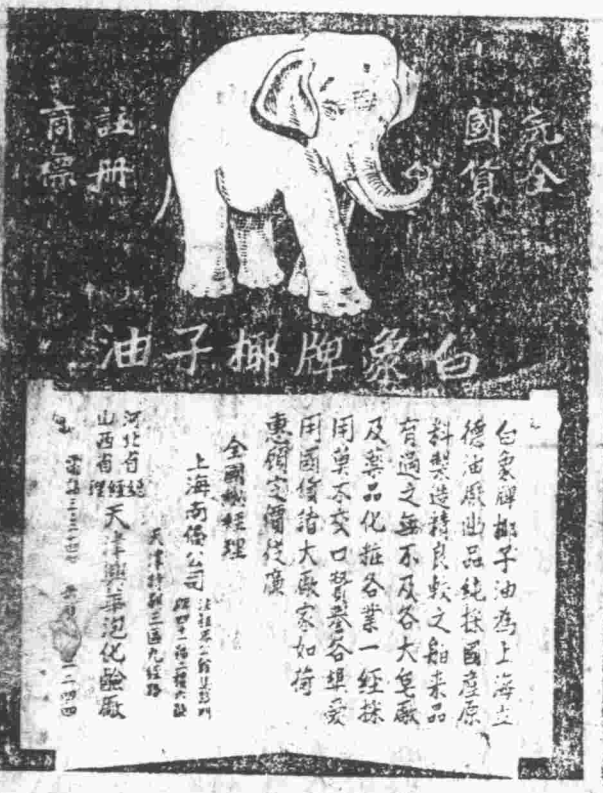 完全
國貨
註册
商標
白象牌椰子油
白象牌椰子油為上海立
德油廠出品純採國產原
料製造精良較之舶來品
有過之無不及各大皂廠
及藥品化粧各業一經採
用莫不交口贊譽各埠愛
用國貨諸大廠家如荷
惠顧定價從廉
全國總經理
上海南僑公司
天津特別三區九經路
河北省
山西省
總經理
天津興華泡化鹼廠